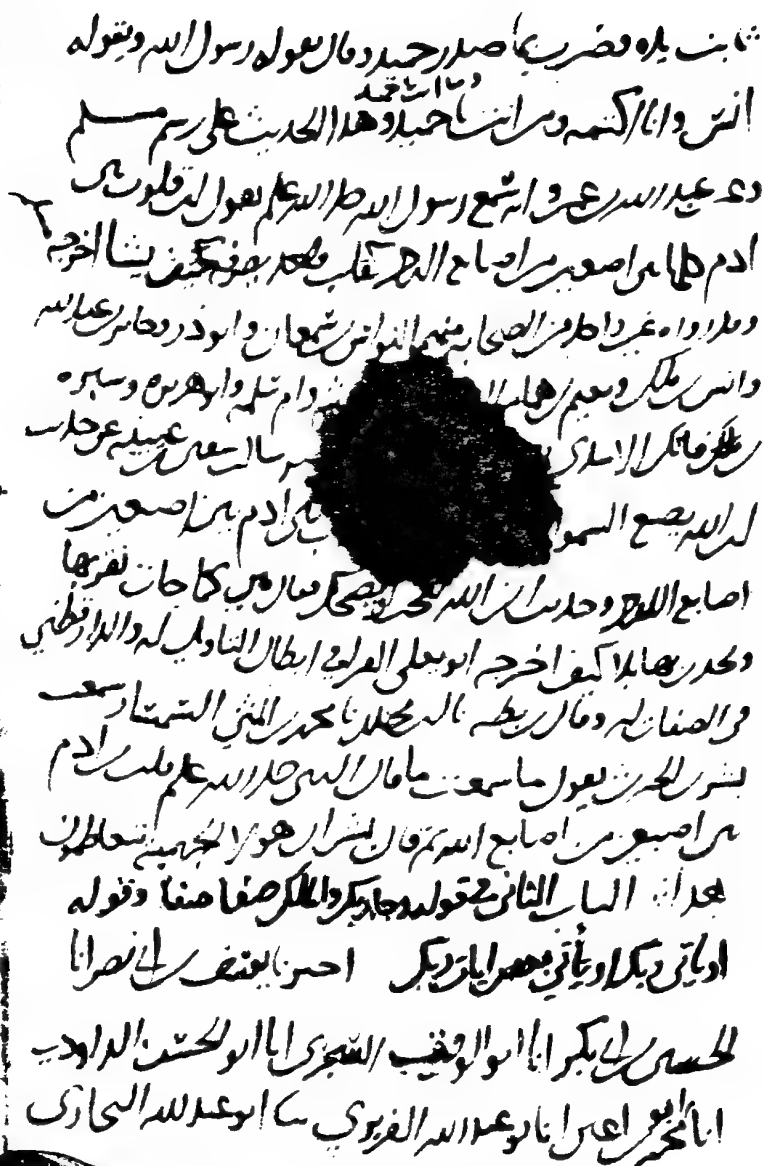 ثابت يده فضرب بها صدر حميد وقال يقوله رسول الله ويقوله
انس وانا اكتمه ومن انت يا حميد وهذا الحديث على رسم مسلم
وما انت يا حميد
وعن عبد الله بن عمرو انه سمع رسول الله صلى الله عليه يقول ان قلوب بني
ادم كلها بين اصبعين من اصابع الرحمن كقلب واحد يصرفه كيف يشا اخرجه م
وقد رواه غير واحد من الصحابة منهم النواس بن سمعان وابو ذر وجابر بن عبد الله
وانس بن مالك ونعيم بن همار وام سلمة وابو هريرة وسبرة
بن فاتك الاسدي سالت سفين بن عيينة عن حديث
ان الله يضع السمو بني ادم بين اصبعين من
اصابع الرحمن وحديث ان الله يعجب او يضحك فقال هي كما جات نقر بها
ونحدث بها بلا كيف اخرجه ابو يعلى الفرا في ابطال التاويل له والدارقطني
في الصفات له وقال بن بطة نا بن مخلد نا محمد بن المثنى السمسار سمعت
بشر بن الحرث يقول ما سمعت ما قال النبي صلى الله عليه قلب بن ادم
بين اصبعين من اصابع الله ثم قال بشر ان هولا الجهمية يتعاظمون
هذا الباب الثاني في قوله وجا ربك والملك صفا صفا وقوله
او ياتي ربك او ياتي بعض ايات ربك اخبرنا يوسف بن ابي نصر انا
الحسين بن ابي بكر انا ابو الوقت السجزي انا ابو الحسن الداودي
انا ابو محمد بن اعين انا ابو عبد الله الفربري نا ابو عبد الله البخاري